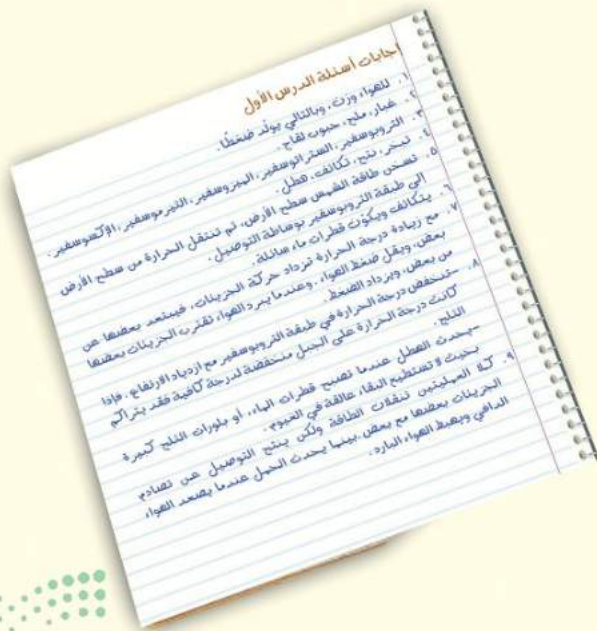 إجابات أسئلة الدرس الأول
١. للهواء وزن، وبالتالي يولد ضغطًا.
٢. غبار، ملح، حبوب لقاح.
٣. التروبوسفير، الستراتوسفير، الميزوسفير، الثيرموسفير، الإكسوسفير.
٤. تبخر، نتح، تكاثف، هطل.
٥. تسخن طاقة الشمس سطح الأرض، ثم تنتقل الحرارة من سطح الأرض
إلى طبقة التروبوسفير بوساطة التوصيل.
٦. يتكاثف ويكوّن قطرات ماء سائلة.
٧. مع زيادة درجة الحرارة تزداد حركة الجزيئات، فيبتعد بعضها عن
بعض، ويقل ضغط الهواء. وعندما يبرد الهواء تقترب الجزيئات بعضها
من بعض، ويزداد الضغط.
٨. -تنخفض درجة الحرارة في طبقة التروبوسفير مع ازدياد الارتفاع. فإذا
كانت درجة الحرارة على الجبل منخفضة لدرجة كافية فقد يتراكم
الثلج.
-يحدث الهطل عندما تصبح قطرات الماء، أو بلورات الثلج كبيرة
بحيث لا تستطيع البقاء عالقة في الغيوم.
٩. كلا العمليتين تنقلان الطاقة ولكن ينتج التوصيل عن تصادم
الجزيئات بعضها مع بعض. بينما يحدث الحمل عندما يصعد الهواء
الدافئ ويهبط الهواء البارد.